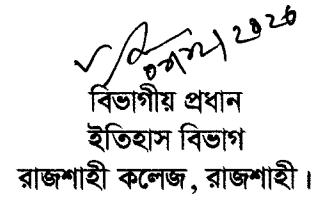 বিভাগীয় প্রধান
ইতিহাস বিভাগ
রাজশাহী কলেজ, রাজশাহী।